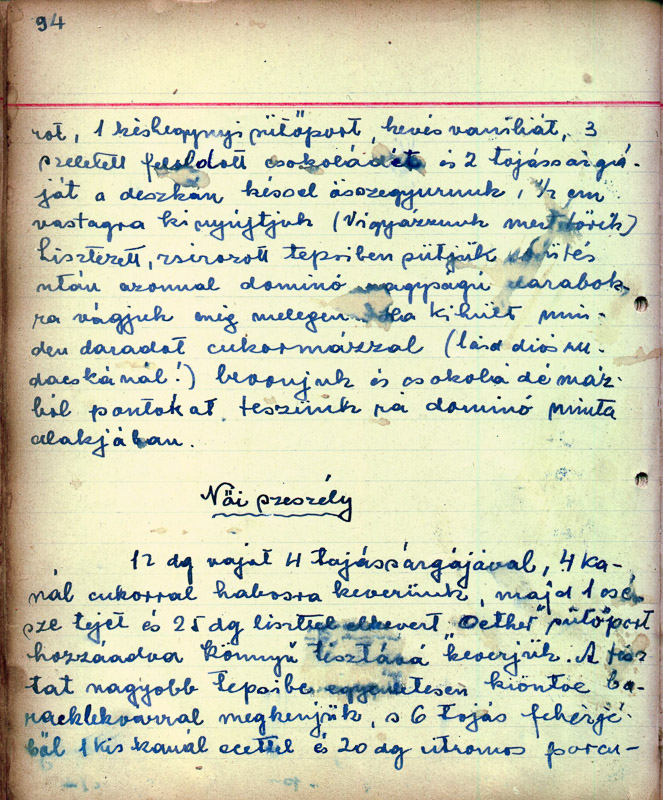 94
rot, 1 késhegynyi sütőport, kevés vaníliát, 3
szeletett feloldott csokoládét és 2 tojássárgá-
ját a deszkán késsel összegyurunk, 1/2 cm
vastagra kinyújtjuk (Vigyázzunk mert törik)
Lisztezett, zsirozott tepsiben sütjük sütés
után azonnal dominó nagyságú darabok-
ra vágjuk még melegen. Ha kihült min-
den daradot cukormázzal (lásd diós ru-
dacskánál!) bevonjuk és csokoládé máz-
ból pontokat teszünk rá dominó minta
alakjában.
Női szeszély
12 dg vajat 4 tojássárgájával, 4 ka-
nál cukorral habosra keverünk, majd 1 csé-
sze tejet és 25 dg liszttel elkevert "Oetker" sütőport
hozzáadva könnyű tésztává keverjük. A tész-
tát nagyobb tepsibe egyenletesen kiöntve ba-
racklekvárral megkenjük, s 6 tojás fehérjé-
ből 1 kis kanál ecettel és 20 dg utromos porcu-